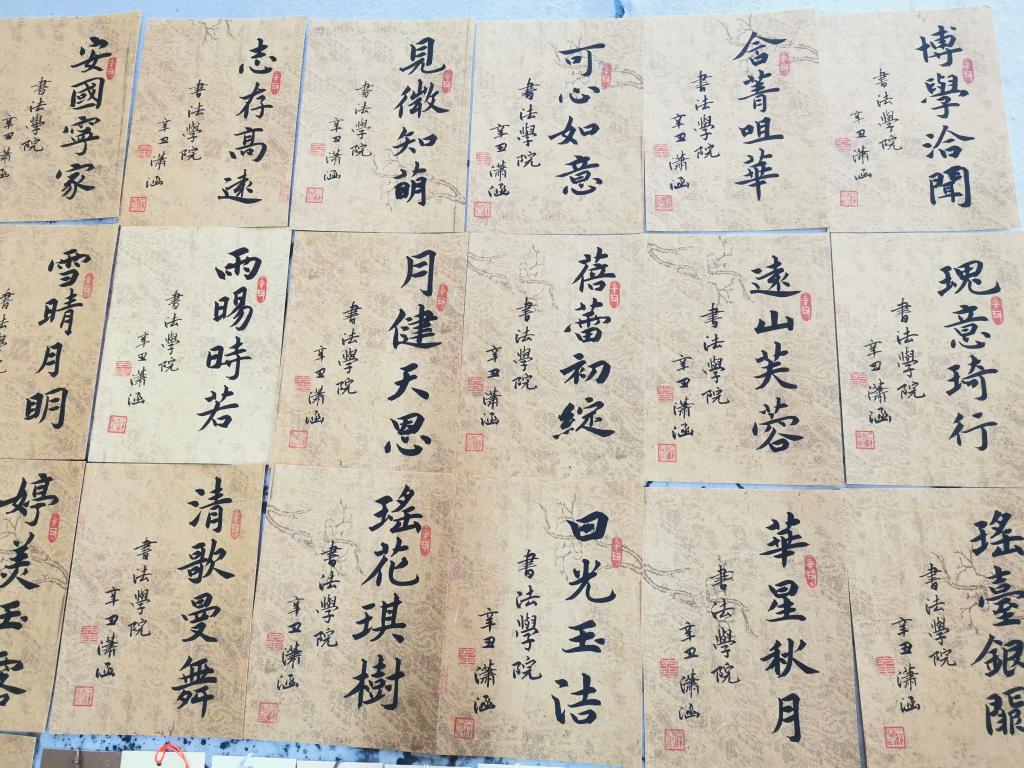 安國寧家
書法學院
辛丑瀟
志存高遠
書法學院
辛丑瀟涵
見微知萌
書法學院
辛丑瀟涵
可心如意
書法學院
辛丑瀟涵
含菁咀華
書法學院
辛丑瀟涵
博學洽聞
書法學院
辛丑瀟涵
雪晴月明
書法
雨暘時若
書法學院
辛丑瀟涵
月健天恩
書法學院
辛丑瀟涵
蓓蕾初綻
書法學院
辛丑瀟涵
遠山芙蓉
書法學院
辛丑瀟涵
瑰意琦行
書法學院
辛丑瀟涵
婷美玉
清歌曼舞
書法學院
辛丑瀟涵
瑤花琪樹
書法學院
辛丑瀟涵
日光玉洁
書法學院
辛丑瀟涵
華星秋月
書法學院
辛丑瀟涵
瑤臺銀闕
書法學院
辛丑瀟涵